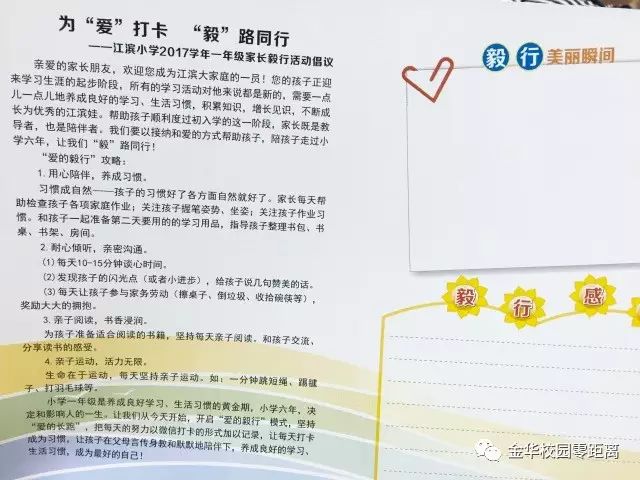 为“爱”打卡 “毅”路同行
——江滨小学2017学年一年级家长毅行活动倡议
亲爱的家长朋友，欢迎您成为江滨大家庭的一员！您的孩子正迎
来学习生涯的起步阶段，所有的学习活动对他来说都是新的，需要一点
儿一点儿地养成良好的学习、生活习惯，积累知识，增长见识，不断成
长为优秀的江滨娃。帮助孩子顺利度过初入学的这一阶段，家长既是教
导者，也是陪伴者。我们要以接纳和爱的方式帮助孩子，陪孩子走过小
学六年，让我们“毅”路同行！
“爱的毅行”攻略：
1. 用心陪伴，养成习惯。
习惯成自然——孩子的习惯好了各方面自然就好了。家长每天帮
助检查孩子各项家庭作业；关注孩子握笔姿势、坐姿；关注孩子作业习
惯。和孩子一起准备第二天要用的的学习用品，指导孩子整理书包、书
桌、书架、房间。
2. 耐心倾听，亲密沟通。
(1)每天10-15分钟谈心时间。
(2)发现孩子的闪光点（或者小进步），给孩子说几句赞美的话。
(3)每天让孩子参与家务劳动（擦桌子、倒垃圾、收拾碗筷等），
奖励大大的拥抱。
3. 亲子阅读，书香浸润。
为孩子准备适合阅读的书籍，坚持每天亲子阅读。和孩子交流、
分享读书的感受。
4. 亲子运动，活力无限。
生命在于运动，每天坚持亲子运动。如：一分钟跳短绳、踢毽
子、打羽毛球等。
小学一年级是养成好学习、生活习惯的黄金期，小学六年，决
定和影响人的一生。让我们从今天开始，开启“爱的毅行”模式，坚持
“爱的长跑”，把每天的努力以微信打卡的形式加以记录，让每天打卡
成为习惯，让孩子在父母言传身教和默默地陪伴下，养成良好的学习、
生活习惯，成为最好的自己！
毅行美丽瞬间
毅行感
金华校园零距离